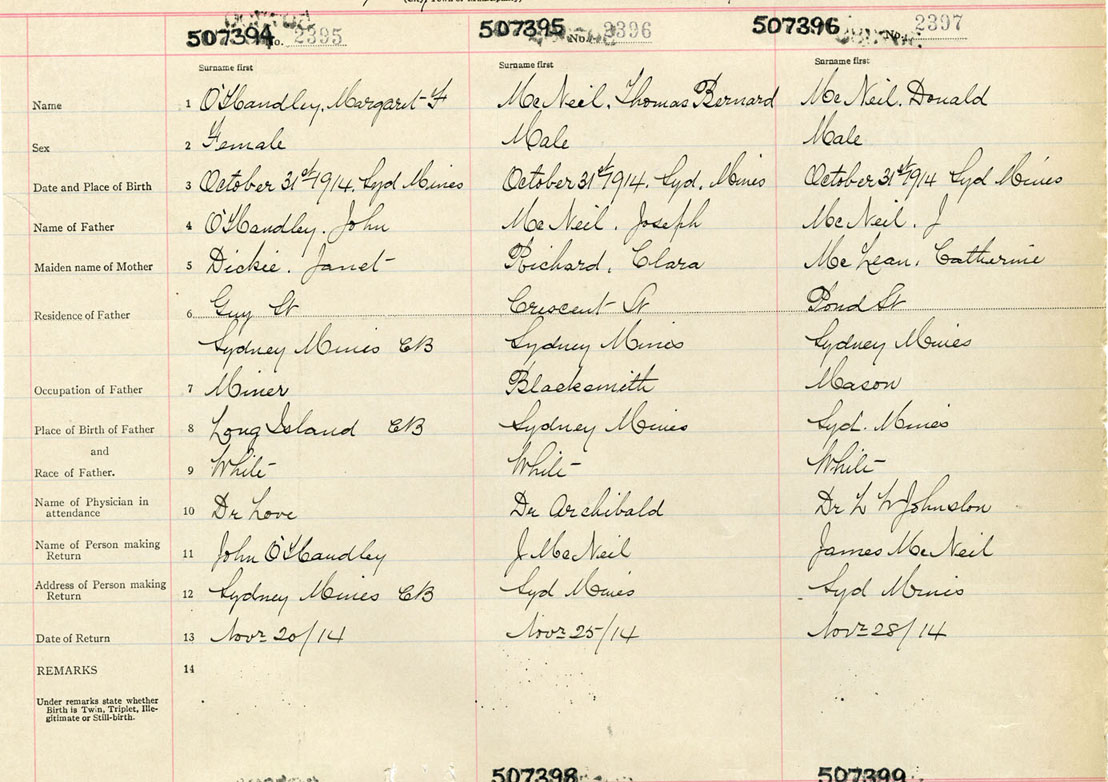 (City, Town or Municipality)
507394 No. 2395 507395 No. 2396 507396 No. 2397
Surname first Surname first Surname first
Name 1 O'Handley, Margaret F McNeil. Thomas Bernard McNeil. Donald
Sex 2 Female Male Male
Date and Place of Birth 3 October 31st/1914. Syd Mines October 31st/1914. Syd. Mines October 31st/1914 Syd Mines
Name of Father 4 O'Handley. John McNeil. Joseph McNeil. J
Maiden name of Mother 5 Dickie. Janet Richard, Clara McLean, Catherine
Residence of Father 6 Guy St Crescent St Pond St
Sydney Mines CB Sydney Mines Sydney Mines
Occupation of Father 7 Miner Blacksmith Mason
Place of Birth of Father 8 Long Island CB Sydney Mines Syd. Mines
and
Race of Father. 9 White White White
Name of Physician in
attendance 10 Dr Love Dr Archibald Dr L W Johnston
Name of Person making
Return 11 John O'Handley J McNeil James McNeil
Address of Person making
Return 12 Sydney Mines CB Syd Mines Syd Mines
Date of Return 13 Novr 20/14 Novr 25/14 Novr 28/14
REMARKS 14
Under remarks state whether
Birth is Twin, Triplet, Ille-
gitimate or Still-birth.
507398 507399